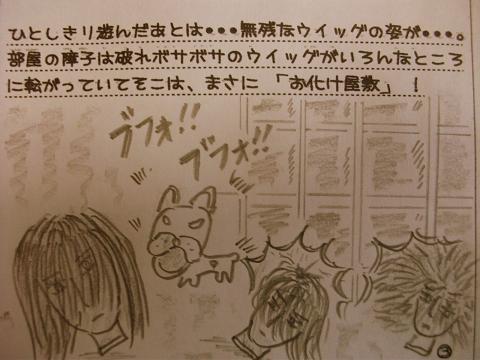 ひとしきり遊んだあとは・・・無残なウイッグの姿が・・・。
部屋の障子は破れボサボサのウイッグがいろんなところ
に転がっていてそこは、まさに 「お化け屋敷」 !
ブフォ!!
ブフォ!!
③